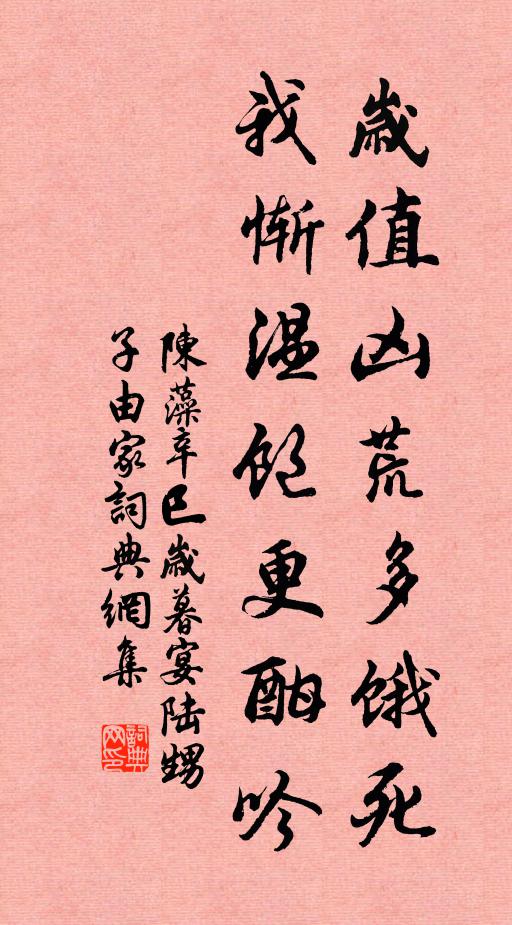 歲值凶荒多餓死
我慚溫飽更酣吟
陳藻辛巳歲暮宴陸甥
子由家詞典網集
詞典網印